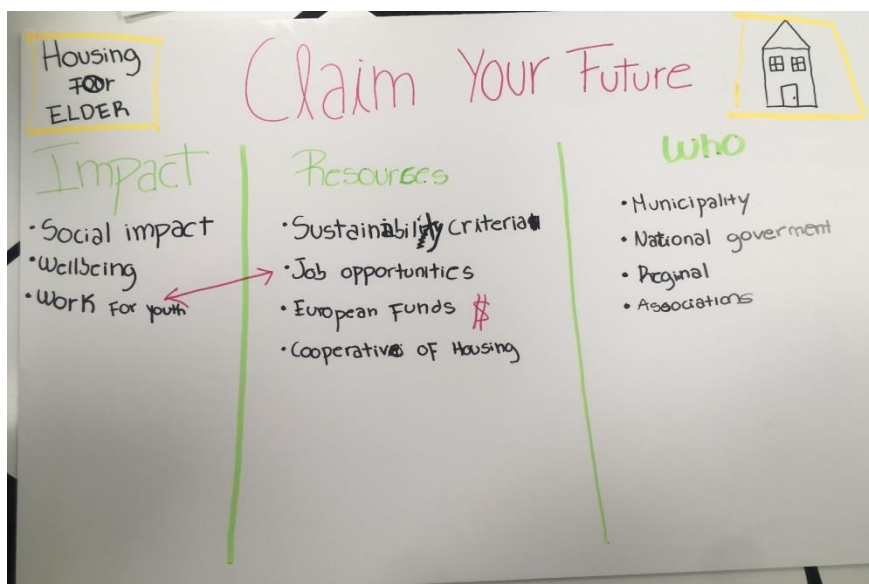 Housing
For
ELDER
Claim Your Future
Impact
• Social impact
• Wellbeing
• Work For youth
Resources
• Sustainability criteria
• Job opportunities
• European Funds $
• Cooperative of Housing
Who
• Municipality
• National goverment
• Reginal
• Associations